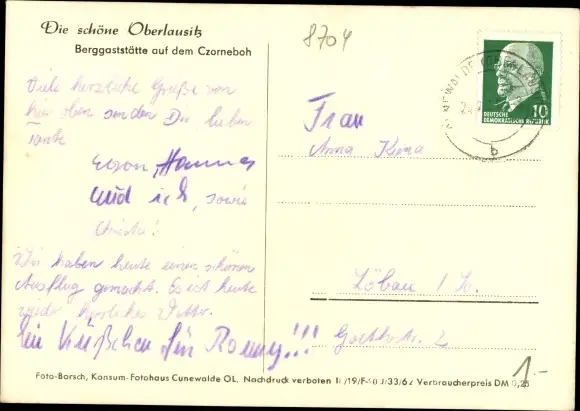 Die schöne Oberlausitz
Berggaststätte auf dem Czorneboh
8704
DEUTSCHE
DEMOKRATISCHE REPUBLIK
10
b
Viele herzliche Grüße von
hier oben senden Dir lieben
Egon, Hannes
und ich, sowie
Christa!
Wir haben heute einen schönen
Ausflug gemacht. Es ist heute
wieder herrliches Wetter.
Ein Küßchen für Romy!!!
Frau
Anna
Löbau
Goethestr. 2
Foto-Borsch, Konsum-Fotohaus Cunewalde OL. Nachdruck verboten Verbraucherpreis DM 0,25
1.-